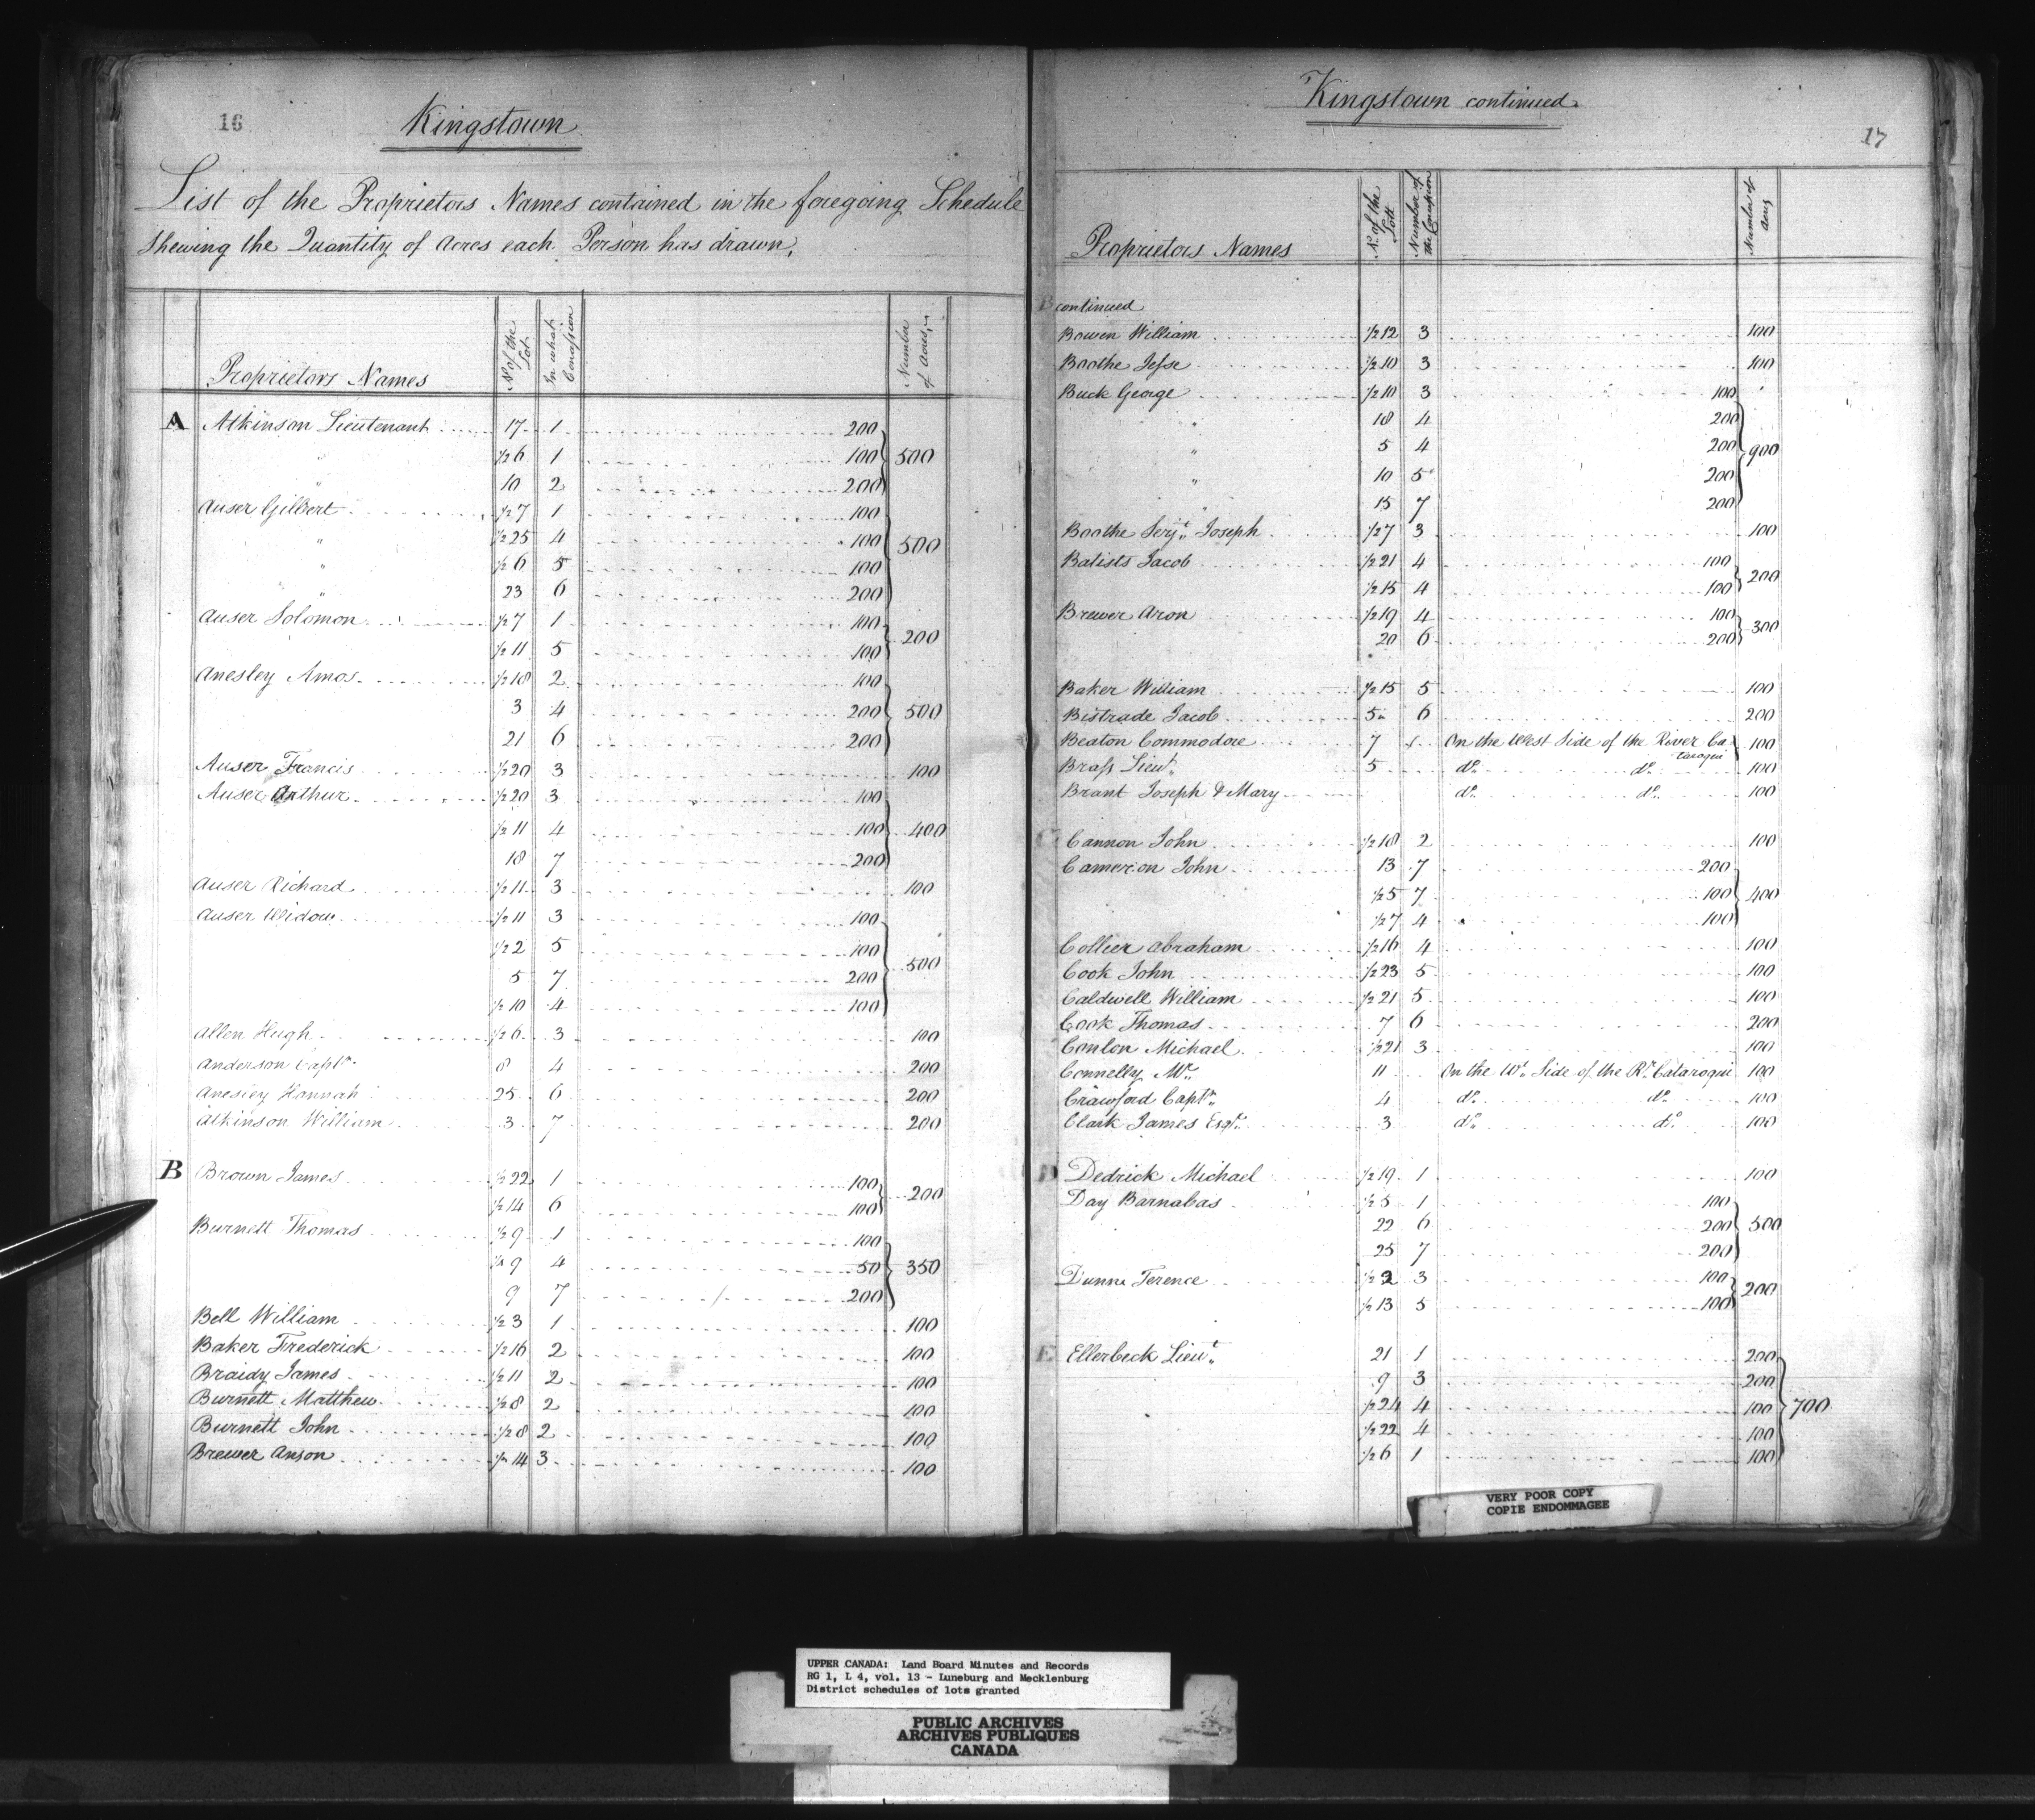 16
Kingstown
List of the Proprietors Names contained in the foregoing Schedule
Shewing the Quantity of Acres each Person has drawn.
Proprietors Names | No. of the Lot | In what Concession | Number of acres
A Atkinson Lieutenant 17 1 200
" ½ 6 1 100 } 500
" 10 2 200
Auser Gilbert ½ 7 1 100
" ½ 25 4 100 } 500
" ½ 6 5 100
" 23 6 200
Auser Solomon ½ 7 1 100 } 200
½ 11 5 100
Anesley Amos ½ 18 2 100
3 4 200 } 500
21 6 200
Auser Francis ½ 20 3 100
Auser Arthur ½ 20 3 100
½ 11 4 100 } 400
18 7 200
Auser Richard ½ 11 3 100
Auser Widow ½ 11 3 100
½ 2 5 100 } 500
5 7 200
½ 10 4 100
Allen Hugh ½ 6 3 100
Anderson Captn. 8 4 200
Anesley Hannah 25 6 200
Atkinson William 3 7 200
B Brown James ½ 22 1 100 } 200
½ 14 6 100
Burnett Thomas ½ 9 1 100
¼ 9 4 50 } 350
9 7 200
Bell William ½ 3 1 100
Baker Frederick ½ 16 2 100
Braidy James ½ 11 2 100
Burnett Matthew ½ 8 2 100
Burnett John ½ 8 2 100
Brewer Anson ½ 14 3 100
Kingstown continued
17
Proprietors Names | No. of the Lott | Number of the Concession | Number of acres
B continued
Bowen William ½ 12 3 100
Boothe Jesse ½ 10 3 100
Buck George ½ 10 3 100
" 18 4 200
" 5 4 200 } 900
" 10 5 200
" 15 7 200
Boothe Serjt. Joseph ½ 7 3 100
Batists Jacob ½ 21 4 100 } 200
½ 15 4 100
Brewer Aron ½ 19 4 100 } 300
20 6 200
Baker William ½ 15 5 100
Bistrade Jacob 5 6 200
Beaton Commodore 7 On the West Side of the River Ca-taroqui 100
Brass Lieut. 5 do. do. 100
Brant Joseph & Mary do. do. 100
C Cannon John ½ 18 2 100
Cameron John 13 7 200
½ 5 7 100 } 400
½ 7 4 100
Collier Abraham ½ 16 4 100
Cook John ½ 23 5 100
Caldwell William ½ 21 5 100
Cook Thomas 7 6 200
Conlon Michael ½ 21 3 100
Connelly Mr. 11 On the Wt. Side of the Rr. Cataroqui 100
Crawford Captn. 4 do. do. 100
Clark James Esqr. 3 do. do. 100
D Dedrick Michael ½ 19 1 100
Day Barnabas ½ 5 1 100
22 6 200 } 500
25 7 200
Dunn Terence ½ 2 3 100 } 200
½ 13 5 100
E Ellerbeck Lieut. 21 1 200
9 3 200
½ 24 4 100 } 700
½ 22 4 100
½ 6 1 100
VERY POOR COPY
COPIE ENDOMMAGEE
UPPER CANADA: Land Board Minutes and Records
RG 1, L 4, vol. 13 - Luneburg and Mecklenburg
District schedules of lots granted
PUBLIC ARCHIVES
ARCHIVES PUBLIQUES
CANADA